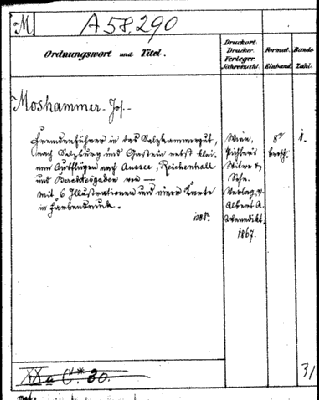 M
A 58.290
Ordnungswort und Titel.
Druckort.
Drucker.
Verleger.
Jahreszahl.
Format.
Einband.
Bände
Zahl.
Moshammer Jos.
Fremdenführer in das Salzkammergut,
nach Salzburg und Gastein nebst klei-
nen Ausflügen nach Aussee, Reichenhall
und Berchtesgaden von —
mit 6 Illustrationen und einer Karte
in Farbendruck.
Wien.
Pichler's
Witwe &
Sohn.
Verlag v.
Albert A.
Wenedikt.
1867.
8°
brosch.
1.
XX
30.
31